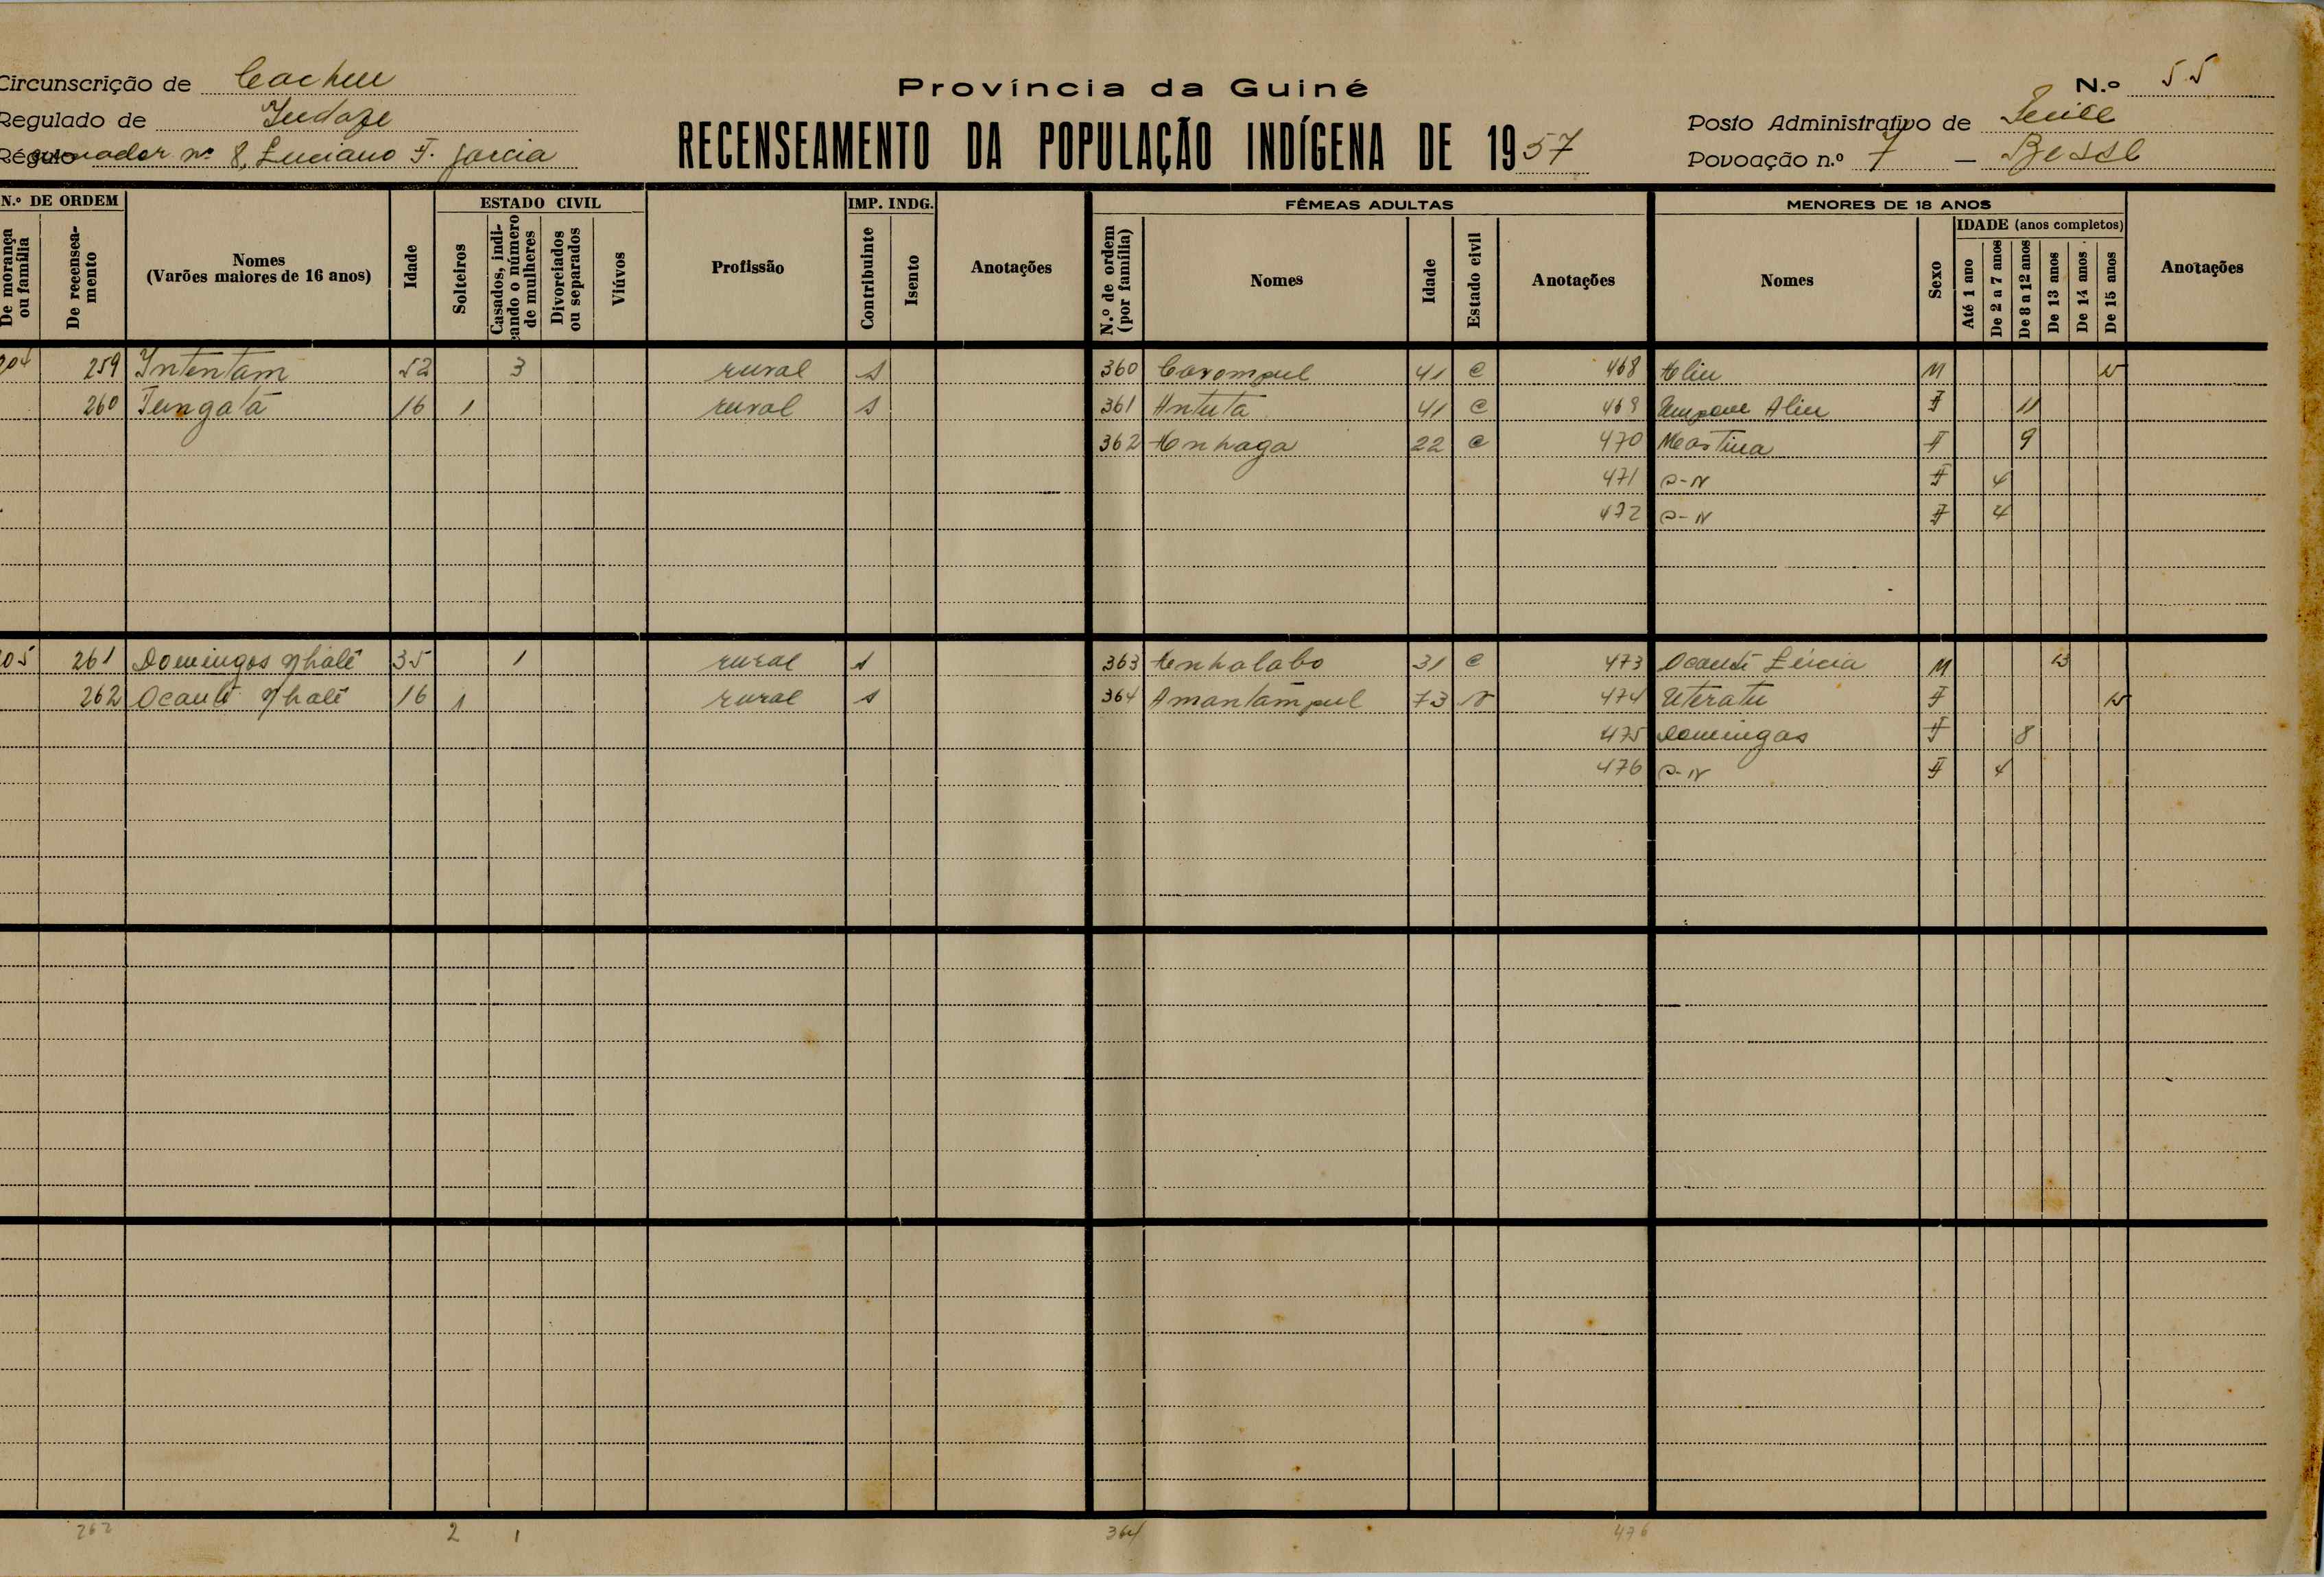 Circunscrição de Cacheu
Província da Guiné
N.º 55
Regulado de
Posto Administrativo de
RECENSEAMENTO DA POPULAÇÃO INDÍGENA DE 1957
Régulo nº 8, Luciano F. Garcia
Povoação n.º 7 –
N.º DE ORDEM
De morança ou família
De recenseamento
Nomes
(Varões maiores de 16 anos)
Idade
ESTADO CIVIL
Solteiros
Casados, indicando o número de mulheres
Divorciados ou separados
Viúvos
Profissão
IMP. INDG.
Contribuinte
Isento
Anotações
FÊMEAS ADULTAS
N.º de ordem (por família)
Nomes
Idade
Estado civil
Anotações
MENORES DE 18 ANOS
Nomes
Sexo
IDADE (anos completos)
Até 1 ano
De 2 a 7 anos
De 8 a 12 anos
De 13 anos
De 14 anos
De 15 anos
Anotações
204 259 Intentam 52 3 rural s 360 41 C 468 Aliu M 15
260 16 1 rural s 361 Antuta 41 C 469 Aliu F 11
362 22 C 470 F 9
471 S-N F 4
472 S-N F 4
205 261 Domingos 35 1 rural s 363 31 C 473 M 13
262 16 1 rural s 364 Amantampul 73 V 474 F 15
475 Domingas F 8
476 S-N F 4
262 2 1 364 476